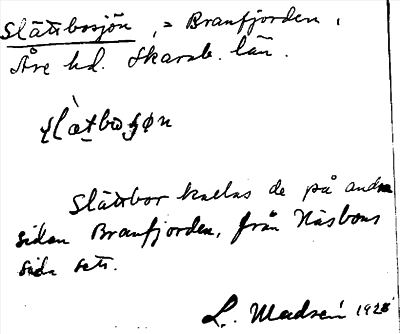 Slättbosjön, = Branfjorden,
Åse hd. Skarab. län.
Slättbor kallas de på andra
sidan Branfjorden, från Näsbons
sida sett.
L. Madsén 1928